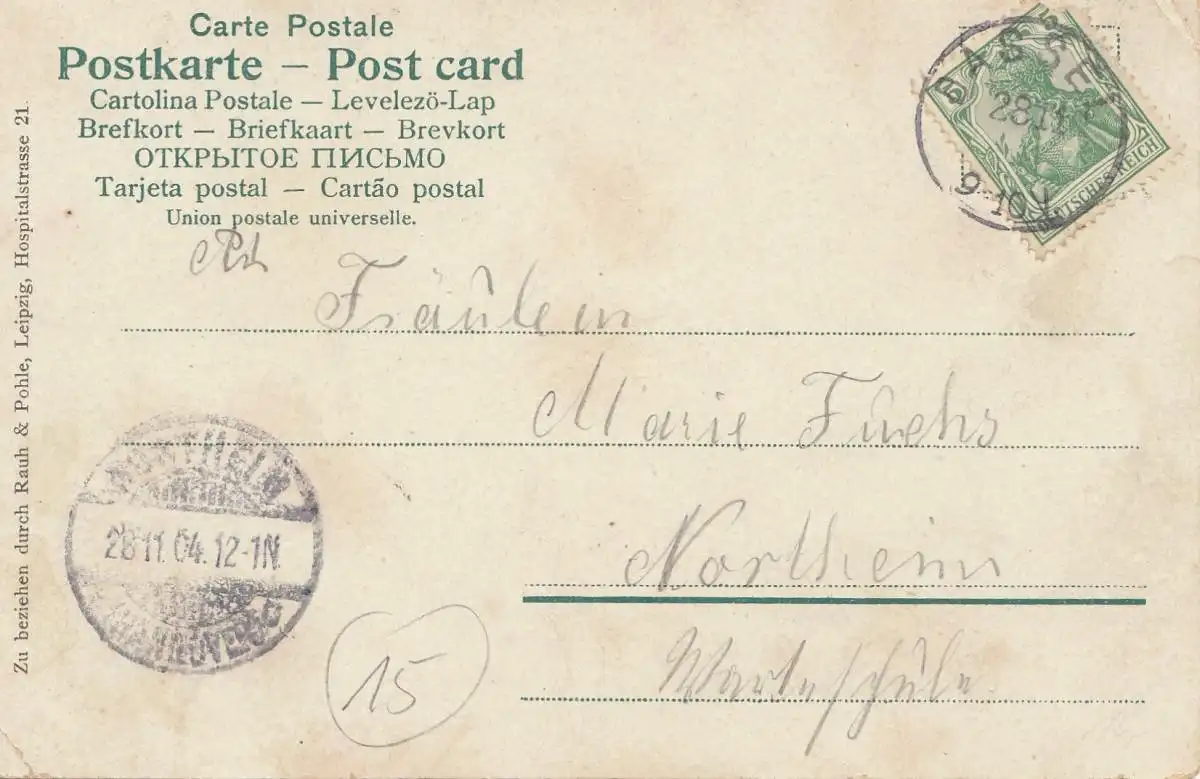 Carte Postale
Postkarte – Post card
Cartolina Postale — Levelezö-Lap
Brefkort — Briefkaart — Brevkort
ОТКРЫТОЕ ПИСЬМО
Tarjeta postal — Cartão postal
Union postale universelle.
5
DEUTSCHES REICH
9-10
Fräulein
Marie Fuchs
Northeim
Warteschule
NORTHEIM
28.11.04.12-1N.
(HANNOVER)
15
Zu beziehen durch Rauh & Pohle, Leipzig, Hospitalstrasse 21.